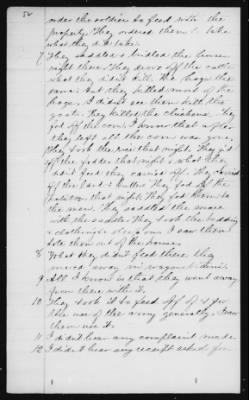 52
order the soldiers to feed with the
property. They ordered them to take
what they did take.
7 They saddled & bridled the horses
right there. They drove off the cattle
what they didn't kill. The hogs the
same. But they killed most of the
hogs. I didn't see them kill the
goats. They killed the chickens. They
fed off the corn. I know that after
they left all the corn was gone,
They took the rice that night. They fed
off the fodder that night & what they
didn't feed they carried off. They carried
off the lard & butter. They fed
the potatoes that night. They fed them to
the men. They saddled the mare
with the saddle. They took the bedding
& clothing I saw them
tote them out of the house.
8 What they didn't feed there they
moved away in wagons
9 All I know is that they went away
from there with it.
10 They took it to feed off of & for
the use of the army generally. I saw
them use it.
11 I didn't hear any complaint made.
12 I didn't hear any receipt asked for